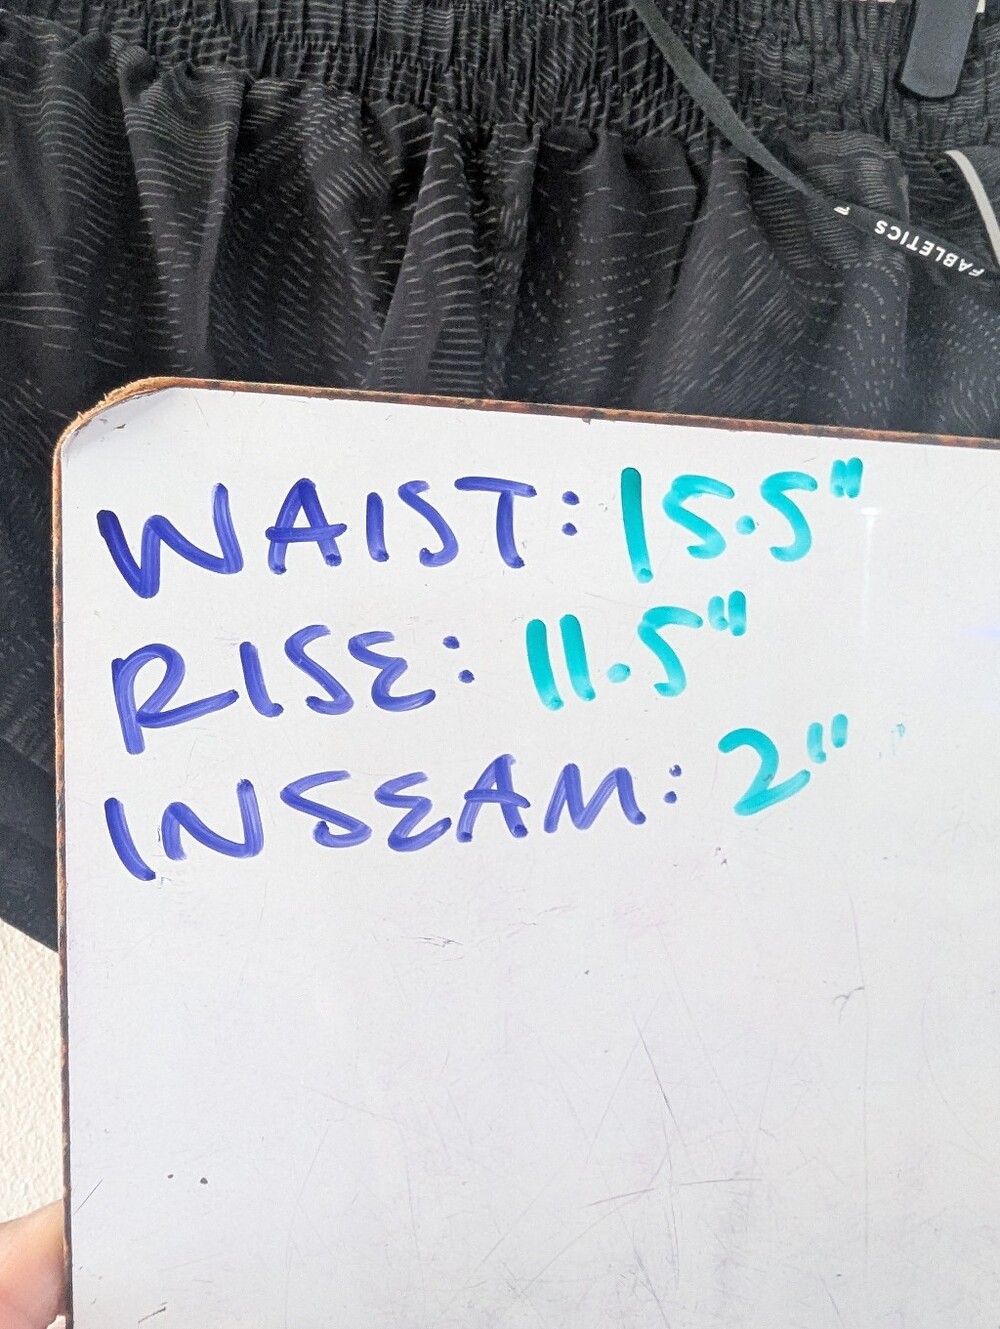 FABLETICS F
WAIST: 15.5"
RISE: 11.5"
INSEAM: 2"